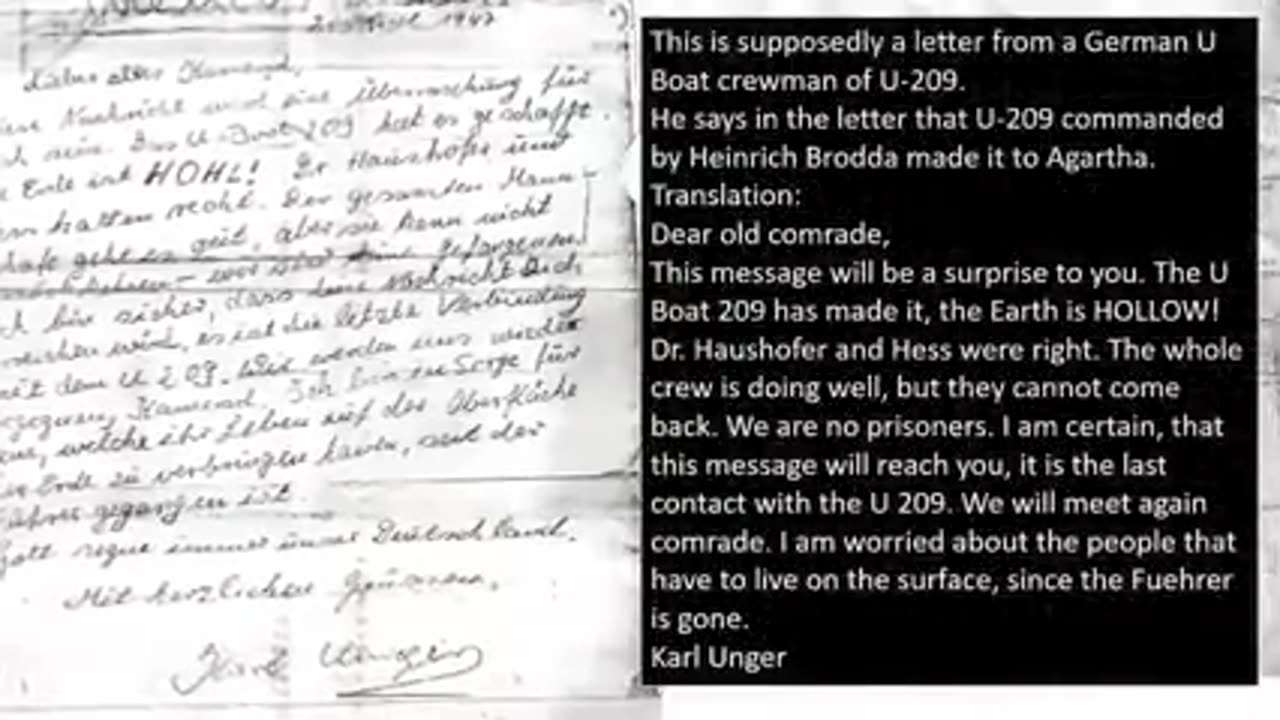 1947
Kamerad,
Nachricht wird eine Überraschung für
sein. Das U-Boot 209 hat es geschafft.
Erde ist HOHL! Dr Haushofer und
hatten recht. Der gesamten Mann-
geht es gut, aber sie kann nicht
Gefangenen.
bin sicher, dass Nachricht Dich
wird, es ist die letzte Verbindung
mit dem U 209. Wir werden uns wieder
Kamerad. Ich bin in Sorge für
welche ihr Leben auf der Oberfläche
Erde zu verbringen haben, seit der
gegangen ist.
immer Deutschland.
Mit herzlichen Grüssen,
Karl Unger
This is supposedly a letter from a German U
Boat crewman of U-209.
He says in the letter that U-209 commanded
by Heinrich Brodda made it to Agartha.
Translation:
Dear old comrade,
This message will be a surprise to you. The U
Boat 209 has made it, the Earth is HOLLOW!
Dr. Haushofer and Hess were right. The whole
crew is doing well, but they cannot come
back. We are no prisoners. I am certain, that
this message will reach you, it is the last
contact with the U 209. We will meet again
comrade. I am worried about the people that
have to live on the surface, since the Fuehrer
is gone.
Karl Unger